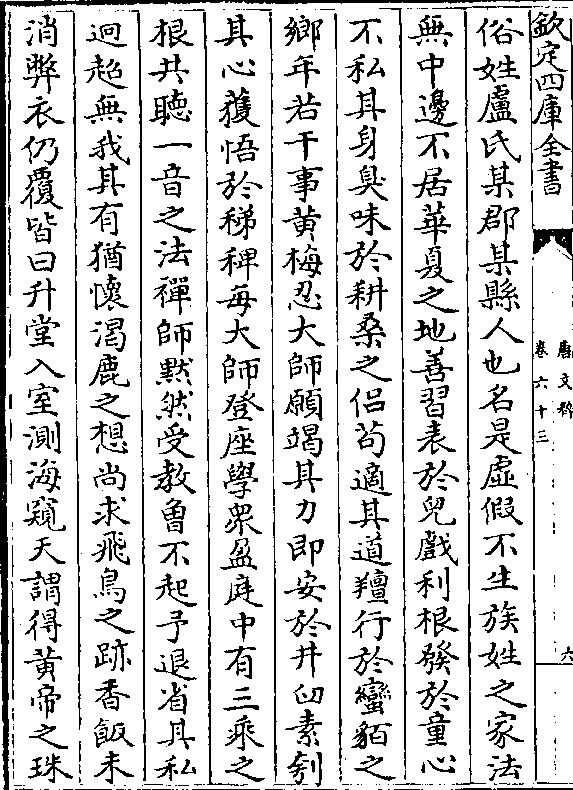 欽定四庫全書
唐文粹
卷六十三
六
俗姓盧氏某郡某縣人也名是虛假不生族姓之家法
無中邊不居華夏之地善習表於兒戲利根發於童心
不私其身臭味於耕桑之侣茍適其道羶行於蠻貊之
鄉年若干事黄梅忍大師願竭其力即安於井臼素刳
其心獲悟於稊稗每大師登座學衆盈庭中有三乘之
根共聽一音之法禪師黙然受教曾不起予退省其私
迥超無我其有猶懷渴鹿之想尚求飛鳥之跡香飯未
消弊衣仍覆皆曰升堂入室測海窺天謂得黄帝之珠